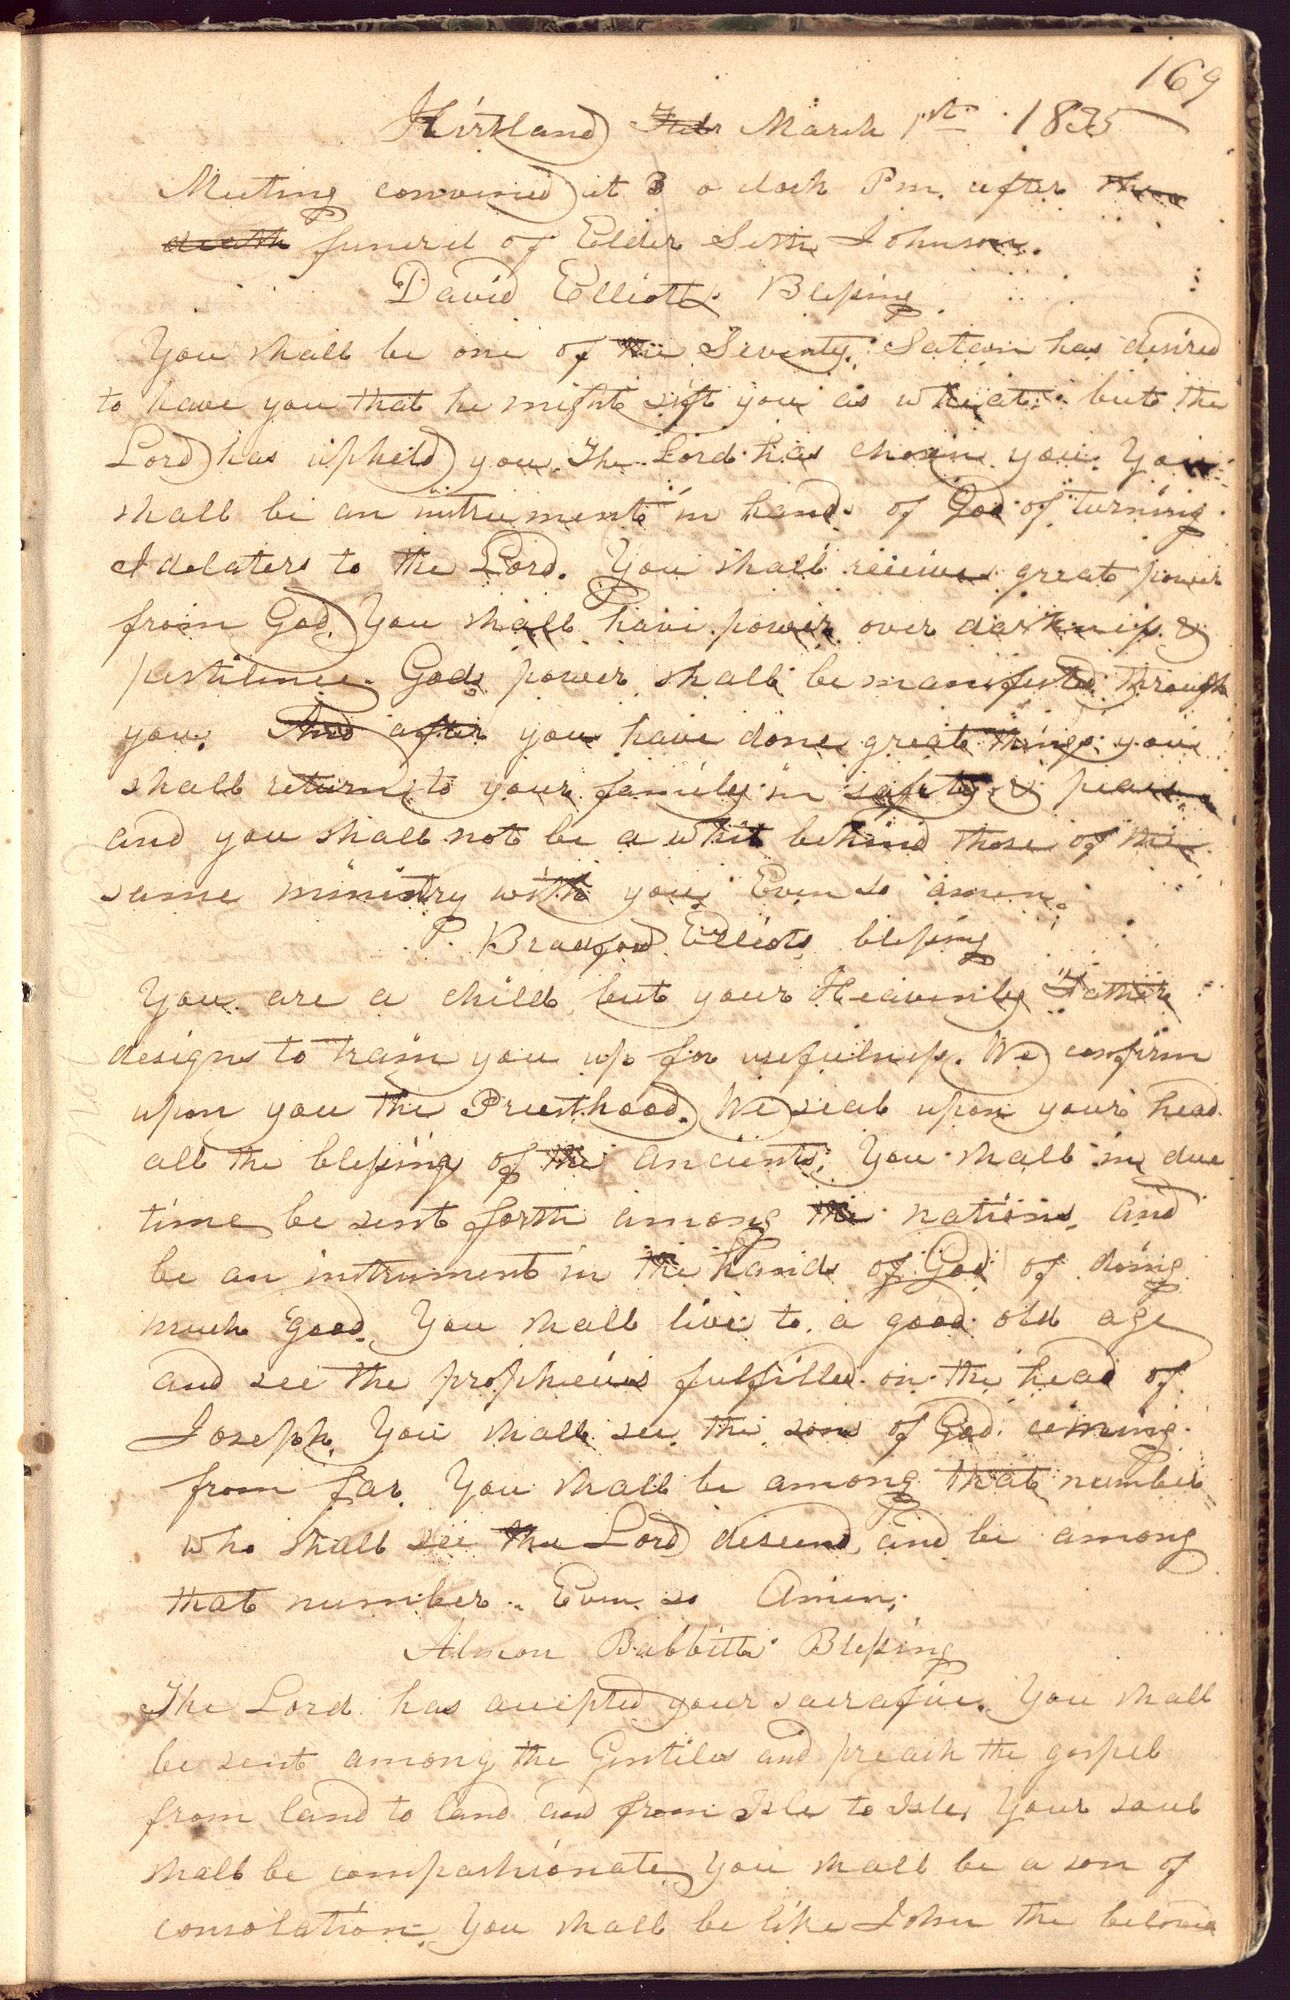 169
Kirtland Feb March 1st 1835
Meeting convened at 3 o clock P m. after the
death funeral of Elder Seth Johnson.
David Elliott Blessing
You shall be one of the Seventy. Satan has desired
to have you that he might sift you as wheat. but the
Lord has upheld you. The Lord has chosen you. You
shall be an instrument in hand of God of turning
Idolaters to the Lord. You shall receive great power
from God. You shall have power over darkness &
pestilince. Gods power shall be manifested through
you. And after you have done great things you
shall return to your family in safety & peace
and you shall not be a whit behind those of the
same ministry with you Even so amen.
P. Bradford Elliots blessing
You are a child, but your Heavenly Father
designs to train you up for usefulness. We confirm
upon you the Priesthood. We seal upon your head
all the blessing of the ancients. You shall in due
time be sent forth among the nations, and
be an instrument in the hands of God of doing
much good. You shall live to a good old age
and see the prophecies fulfilled on the head of
Joseph. You shall see the sons of God coming
from far. You shall be among that number
who shall see the Lord descend, and be among
that number. Even so Amen.
Almon Babbitts Blessing
The Lord has accepted your sacrafice. You shall
be sent among the Gentiles and preach the gospel
from land to land and from Isle to Isle, Your soul
shall be compashionate You shall be a son of
consolation. You shall be like John the beloved